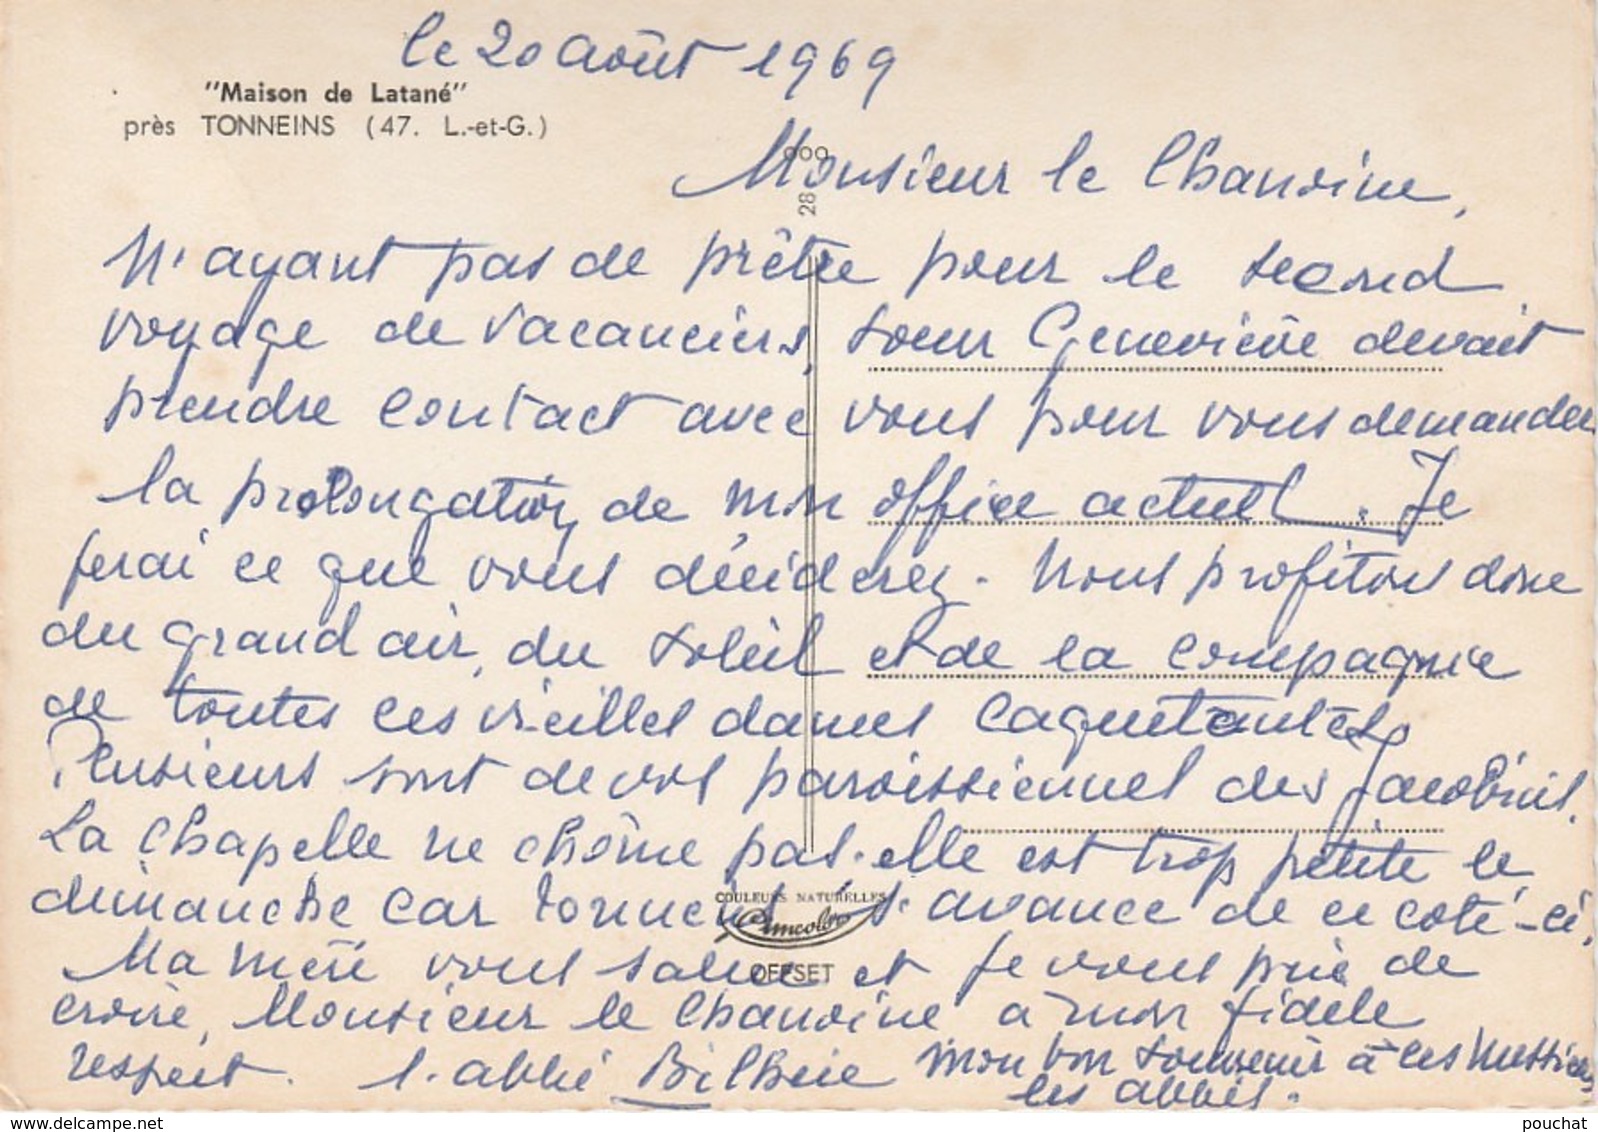 le 20 août 1969
"Maison de Latané"
près TONNEINS (47. L.-et-G.)
Monsieur le Chanoine,
N'ayant pas de prêtre pour le second
voyage de vacanciers, soeur Geneviève devait
prendre contact avec vous pour vous demander
la prolongation de mon office actuel. Je
ferai ce que vous déciderez. Nous profitons donc
du grand air, du soleil et de la compagnie
de toutes ces vieilles dames caquetantes
Plusieurs sont de vos paroissiennes des Jacobins.
La Chapelle ne chôme pas. elle est trop petite le
dimanche car Tonneins s'avance de ce coté-ci.
Ma mère vous salue et je vous prie de
croire, Monsieur le Chanoine a mon fidele
respect. l'abbé Bilhere mon bon souvenir à ces Messieurs
les abbés.
28 000
COULEURS NATURELLES
OFFSET
pouchat